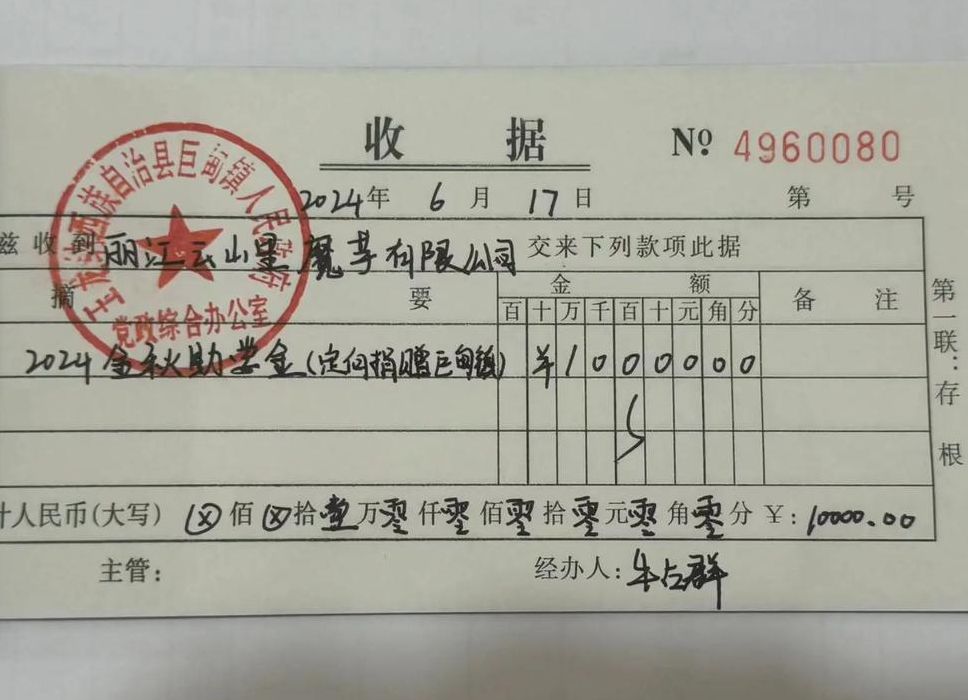 收 据 Nº 4960080
2024年 6 月 17 日 第 号
兹收到 丽江云山星魔芋有限公司 交来下列款项此据
摘 要 金 额 备 注
百 十 万 千 百 十 元 角 分
2024金秋助学金(定向捐赠巨甸镇) ¥ 1 0 0 0 0 0 0
计人民币(大写) ⊗佰⊗拾壹万零仟零佰零拾零元零角零分 ¥: 10000.00
主管: 经办人: 牛占群
第一联:存根
玉龙纳西族自治县巨甸镇人民政府
党政综合办公室